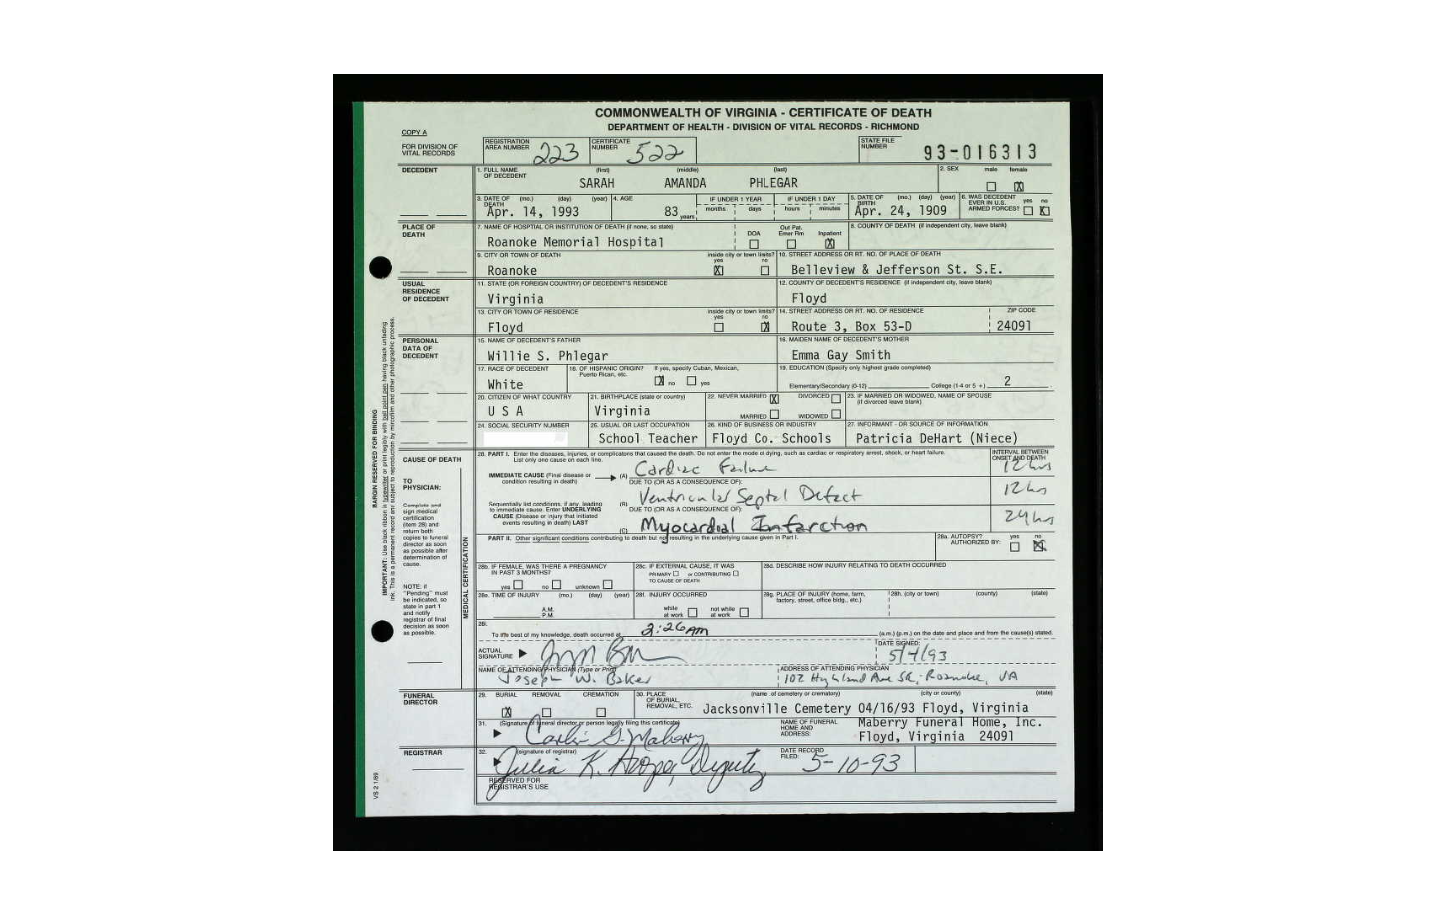 COMMONWEALTH OF VIRGINIA - CERTIFICATE OF DEATH
DEPARTMENT OF HEALTH - DIVISION OF VITAL RECORDS - RICHMOND
COPY A
FOR DIVISION OF VITAL RECORDS
REGISTRATION AREA NUMBER 223
CERTIFICATE NUMBER 522
STATE FILE NUMBER 93-016313
DECEDENT
1. FULL NAME OF DECEDENT (first) (middle) (last)
SARAH AMANDA PHLEGAR
2. SEX male female X
3. DATE OF DEATH (mo.) (day) (year)
Apr. 14, 1993
4. AGE 83 years
IF UNDER 1 YEAR months days
IF UNDER 1 DAY hours minutes
5. DATE OF BIRTH (mo.) (day) (year)
Apr. 24, 1909
6. WAS DECEDENT EVER IN U.S. ARMED FORCES? yes no X
PLACE OF DEATH
7. NAME OF HOSPITAL OR INSTITUTION OF DEATH (if none, so state)
Roanoke Memorial Hospital
DOA Out Pat. Emer Rm Inpatient X
8. COUNTY OF DEATH (if independent city, leave blank)
9. CITY OR TOWN OF DEATH inside city or town limits? yes X no
Roanoke
10. STREET ADDRESS OR RT. NO. OF PLACE OF DEATH
Belleview & Jefferson St. S.E.
USUAL RESIDENCE OF DECEDENT
11. STATE (OR FOREIGN COUNTRY) OF DECEDENT'S RESIDENCE
Virginia
12. COUNTY OF DECEDENT'S RESIDENCE (if independent city, leave blank)
Floyd
13. CITY OR TOWN OF RESIDENCE inside city or town limits? yes no X
Floyd
14. STREET ADDRESS OR RT. NO. OF RESIDENCE ZIP CODE
Route 3, Box 53-D 24091
PERSONAL DATA OF DECEDENT
15. NAME OF DECEDENT'S FATHER
Willie S. Phlegar
16. MAIDEN NAME OF DECEDENT'S MOTHER
Emma Gay Smith
17. RACE OF DECEDENT
White
18. OF HISPANIC ORIGIN? If yes, specify Cuban, Mexican, Puerto Rican, etc.
X no yes
19. EDUCATION (Specify only highest grade completed)
Elementary/Secondary (0-12) College (1-4 or 5 +) 2
20. CITIZEN OF WHAT COUNTRY
U S A
21. BIRTHPLACE (state or country)
Virginia
22. NEVER MARRIED X DIVORCED
MARRIED WIDOWED
23. IF MARRIED OR WIDOWED, NAME OF SPOUSE (if divorced leave blank)
24. SOCIAL SECURITY NUMBER
25. USUAL OR LAST OCCUPATION
School Teacher
26. KIND OF BUSINESS OR INDUSTRY
Floyd Co. Schools
27. INFORMANT - OR SOURCE OF INFORMATION
Patricia DeHart (Niece)
CAUSE OF DEATH
TO PHYSICIAN:
Complete and sign medical certification (item 28) and return both copies to funeral director as soon as possible after determination of cause.
NOTE: If "Pending" must be indicated, so state in part 1 and notify registrar of final decision as soon as possible.
MEDICAL CERTIFICATION
28. PART I. Enter the diseases, injuries, or complications that caused the death. Do not enter the mode of dying, such as cardiac or respiratory arrest, shock, or heart failure. List only one cause on each line.
INTERVAL BETWEEN ONSET AND DEATH
IMMEDIATE CAUSE (Final disease or condition resulting in death) (A) Cardiac Failure 12 hrs
DUE TO (OR AS A CONSEQUENCE OF):
Sequentially list conditions, if any, leading to immediate cause. Enter UNDERLYING CAUSE (Disease or injury that initiated events resulting in death) LAST
(B) Ventricular Septal Defect 12 hrs
DUE TO (OR AS A CONSEQUENCE OF):
(C) Myocardial Infarction 24 hrs
PART II. Other significant conditions contributing to death but not resulting in the underlying cause given in Part I.
28a. AUTOPSY? AUTHORIZED BY: yes no X
28b. IF FEMALE, WAS THERE A PREGNANCY IN PAST 3 MONTHS?
yes no unknown
28c. IF EXTERNAL CAUSE, IT WAS
PRIMARY or CONTRIBUTING
TO CAUSE OF DEATH
28d. DESCRIBE HOW INJURY RELATING TO DEATH OCCURRED
28e. TIME OF INJURY (mo.) (day) (year)
A.M.
P.M.
28f. INJURY OCCURRED
while at work not while at work
28g. PLACE OF INJURY (home, farm, factory, street, office bldg., etc.)
28h. (city or town) (county) (state)
28i.
To the best of my knowledge, death occurred at 2:26 AM (a.m.) (p.m.) on the date and place and from the cause(s) stated.
ACTUAL SIGNATURE
DATE SIGNED: 5/4/93
NAME OF ATTENDING PHYSICIAN (Type or Print)
Joseph W. Baker
ADDRESS OF ATTENDING PHYSICIAN
102 Highland Ave SE, Roanoke, VA
FUNERAL DIRECTOR
29. BURIAL X REMOVAL CREMATION
30. PLACE OF BURIAL, REMOVAL, ETC. (name of cemetery or crematory) (city or county) (state)
Jacksonville Cemetery 04/16/93 Floyd, Virginia
31. (Signature of funeral director or person legally filing this certificate)
Maberry
NAME OF FUNERAL HOME AND ADDRESS:
Maberry Funeral Home, Inc.
Floyd, Virginia 24091
REGISTRAR
32. (signature of registrar)
Julia K. Deputy
DATE RECORD FILED: 5-10-93
RESERVED FOR REGISTRAR'S USE
MARGIN RESERVED FOR BINDING
IMPORTANT: Use black ribbon in typewriter or print legibly with ball point pen having black unfading ink. This is a permanent record and subject to reproduction by microfilm and other photographic process.
VS 2 1/89